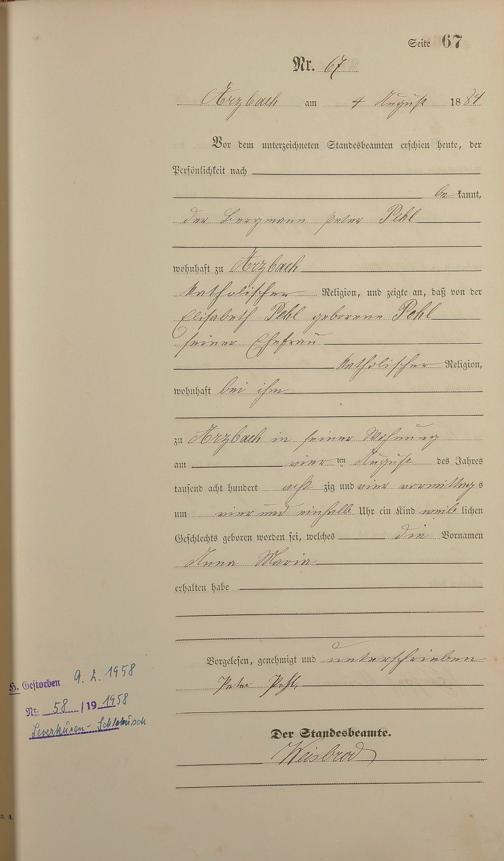 Seite 67
Nr. 67
Arzbach am 4 August 1884
Vor dem unterzeichneten Standesbeamten erschien heute, der
Persönlichkeit nach
be kannt,
der Bergmann Peter Pehl
wohnhaft zu Arzbach
katholischer Religion, und zeigte an, daß von der
Elisabeth Pehl geborene Pehl
seiner Ehefrau
katholischer Religion,
wohnhaft bei ihm
zu Arzbach in seiner Wohnung
am vier ten August des Jahres
tausend acht hundert acht zig und vier vormittag s
um vier und einhalb Uhr ein Kind weib lichen
Geschlechts geboren worden sei, welches die Vornamen
Anna Maria
erhalten habe
Vorgelesen, genehmigt und unterschrieben
Peter Pehl
Der Standesbeamte.
Weisbrod
H. Gestorben 9. 2. 1958
Nr. 58 /19 1958
Leverkusen-Schlebusch